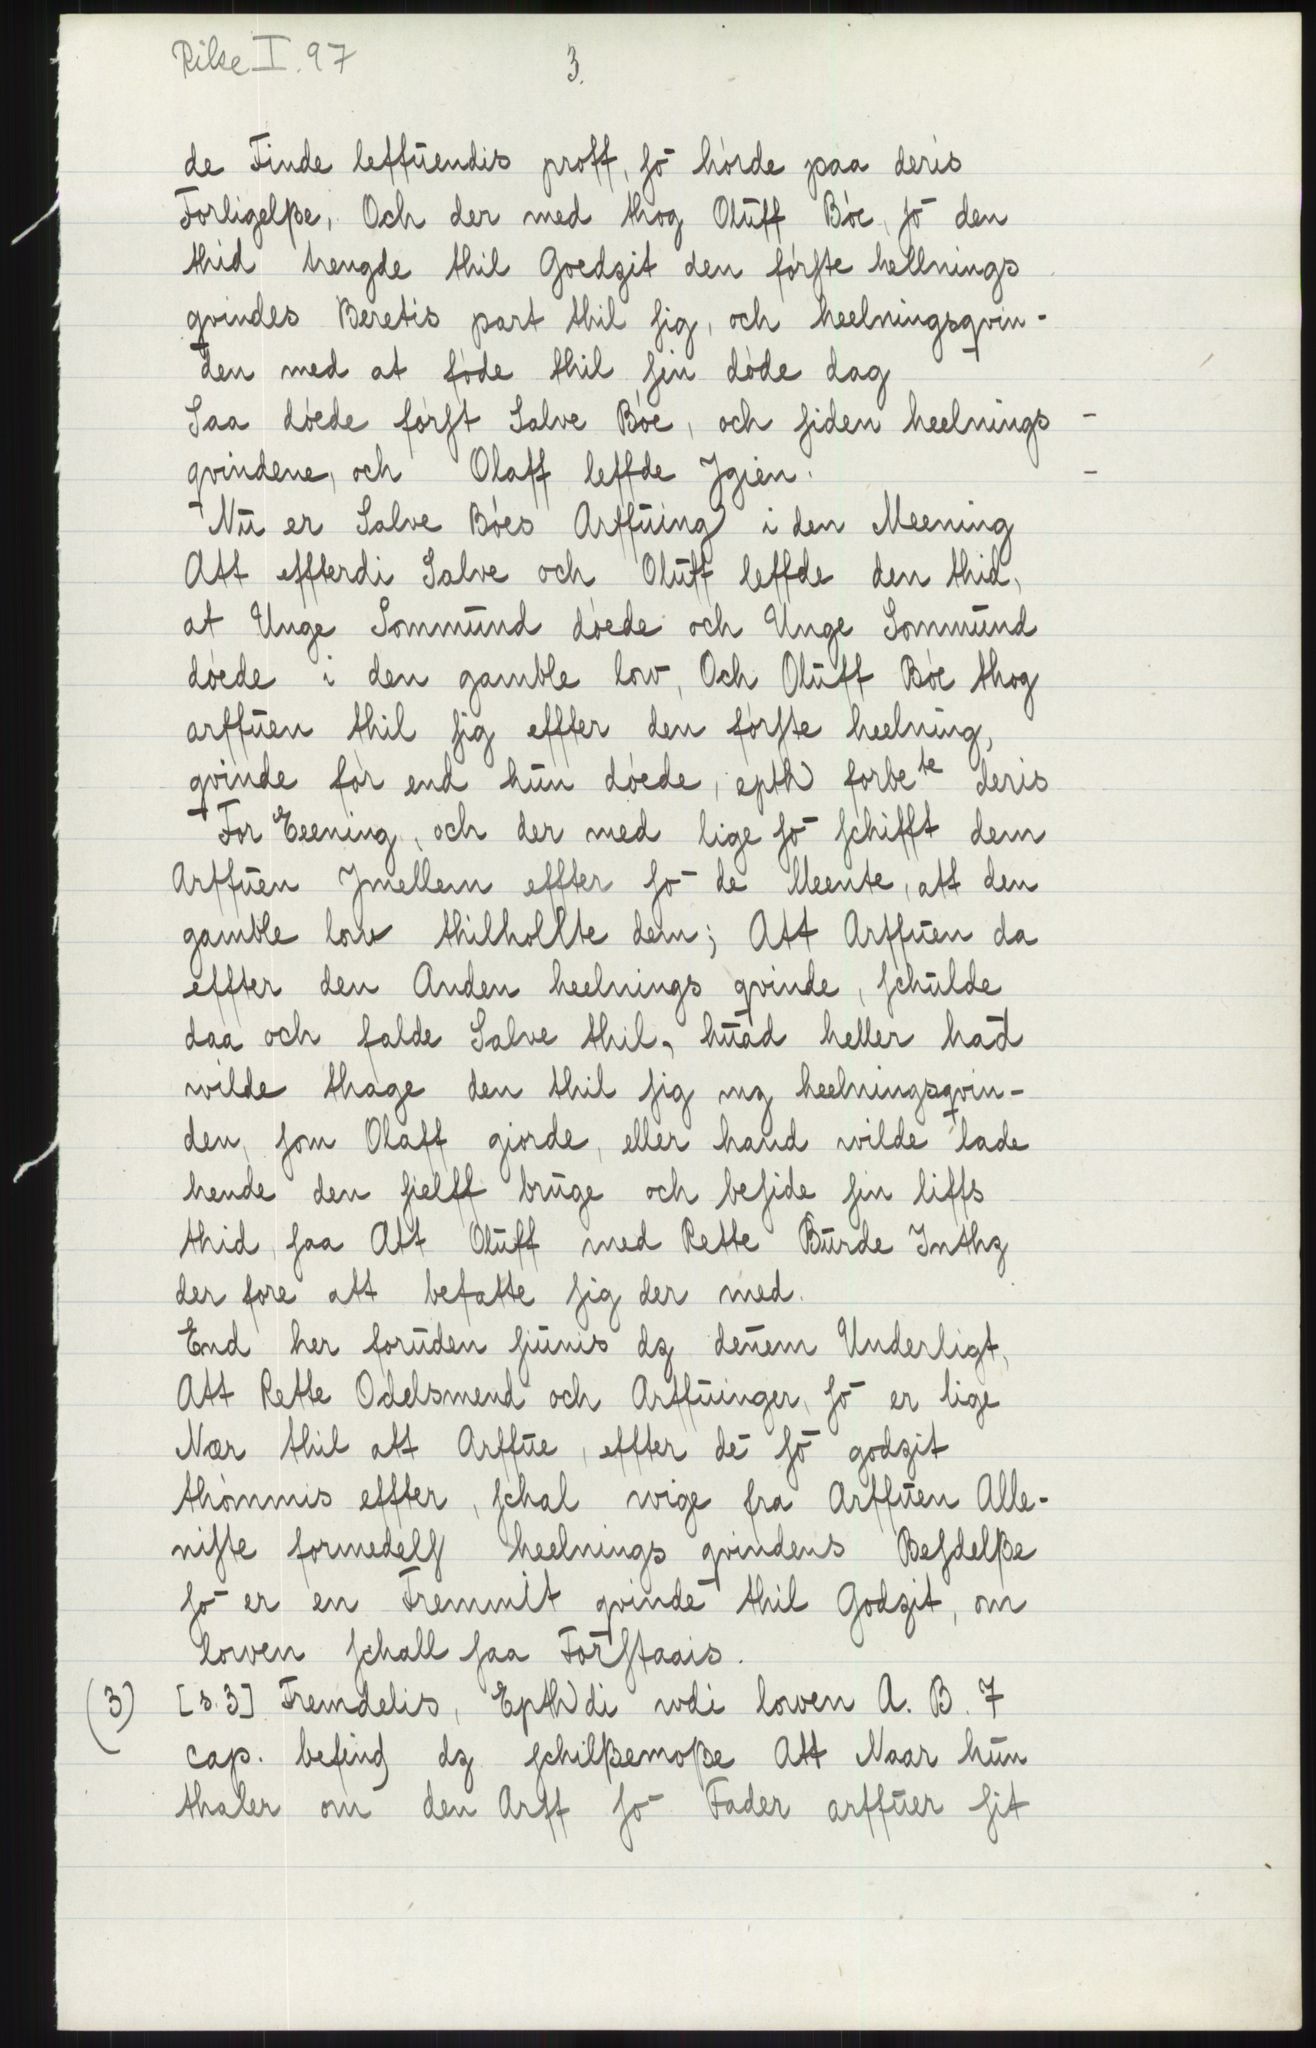 Rike I. 97
3.
de Finde leffuendis proff, so hørde paa deris
Forligelße, Och der med thog Oluff Bøe, so den
thid trengde thil Goedzit den første hellnings
qvindes Beretis part thil sig, och heelningsqvin-
den med at føde thil sin døde dag
Saa døede først Salve Bøe, och siden heelnings
qvindene, och Olaff leffde Jgien.
Nu er Salve Bøes Arffuing i den Meening
Att effterdi Salve och Oluff leffde den thid,
at Unge Sommund døede och Unge Sommund
døede i den gamble low, Och Oluff Bøe thog
arffuen thil sig effter den første heelning,
qvinde før end hun døede, epth forbete deris
For Eeening, och der med lige so schifft dem
Arffuen Jmellem effter so de Meente, att den
gamble low thilhollte dem; Att Arffuen da
effter den Anden heelnings qvinde, schulde
daa och falde Salve thil, huad heller had
wilde thage den thil sig mz heelningsqvin-
den, som Olaff giorde, eller hand wilde lade
hende den sielff bruge och beside sin liffs
thid, saa Att Oluff med Rette Burde Inthz
der fore att befatte sig der med.
End her foruden siunis dz denem Underligt,
Att Rette Odelsmend och Arffuinger, so er lige
Nær thil att Arffue, effter de so godzit
thømmis effter, schal wige fra Arffuen Alle-
niste formedelst heelnings qvindens Besdelße
so er en Fremmit qvinde thil Godzit, om
lowen schall saa Forstaais.
(3) [s. 3] Fremdelis, Epthdi wdi lowen A. B. 7
cap. befind dz schilßemoße Att Naar hun
thaler om den Arff so Fader arffuer sit